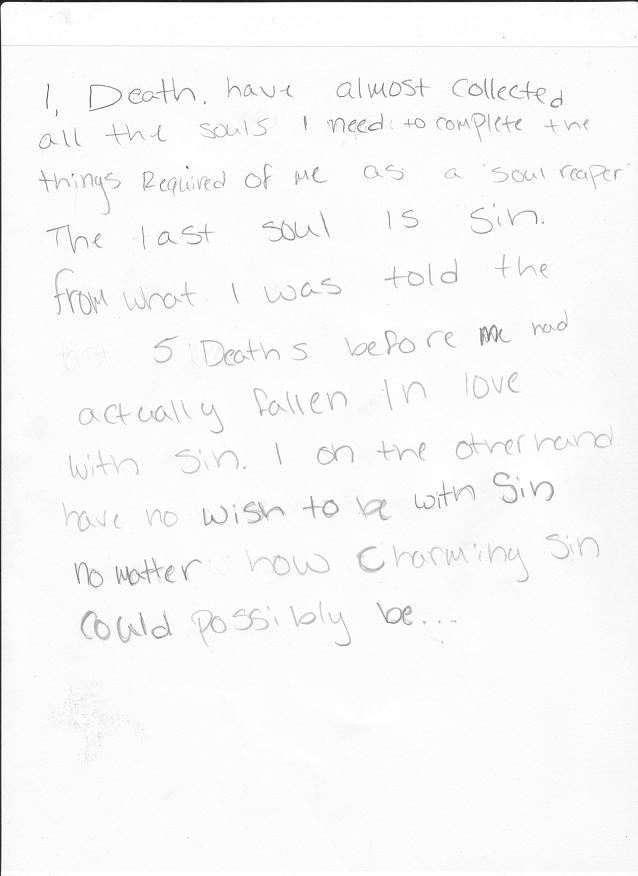 I, Death. have almost collected
all the souls I need to complete the
things Required of me as a 'soul reaper'
The last soul is Sin.
from what I was told the
5 Deaths before me had
actually fallen In love
with Sin. I on the otherhand
have no wish to be with Sin
no matter how Charming Sin
could possibly be...